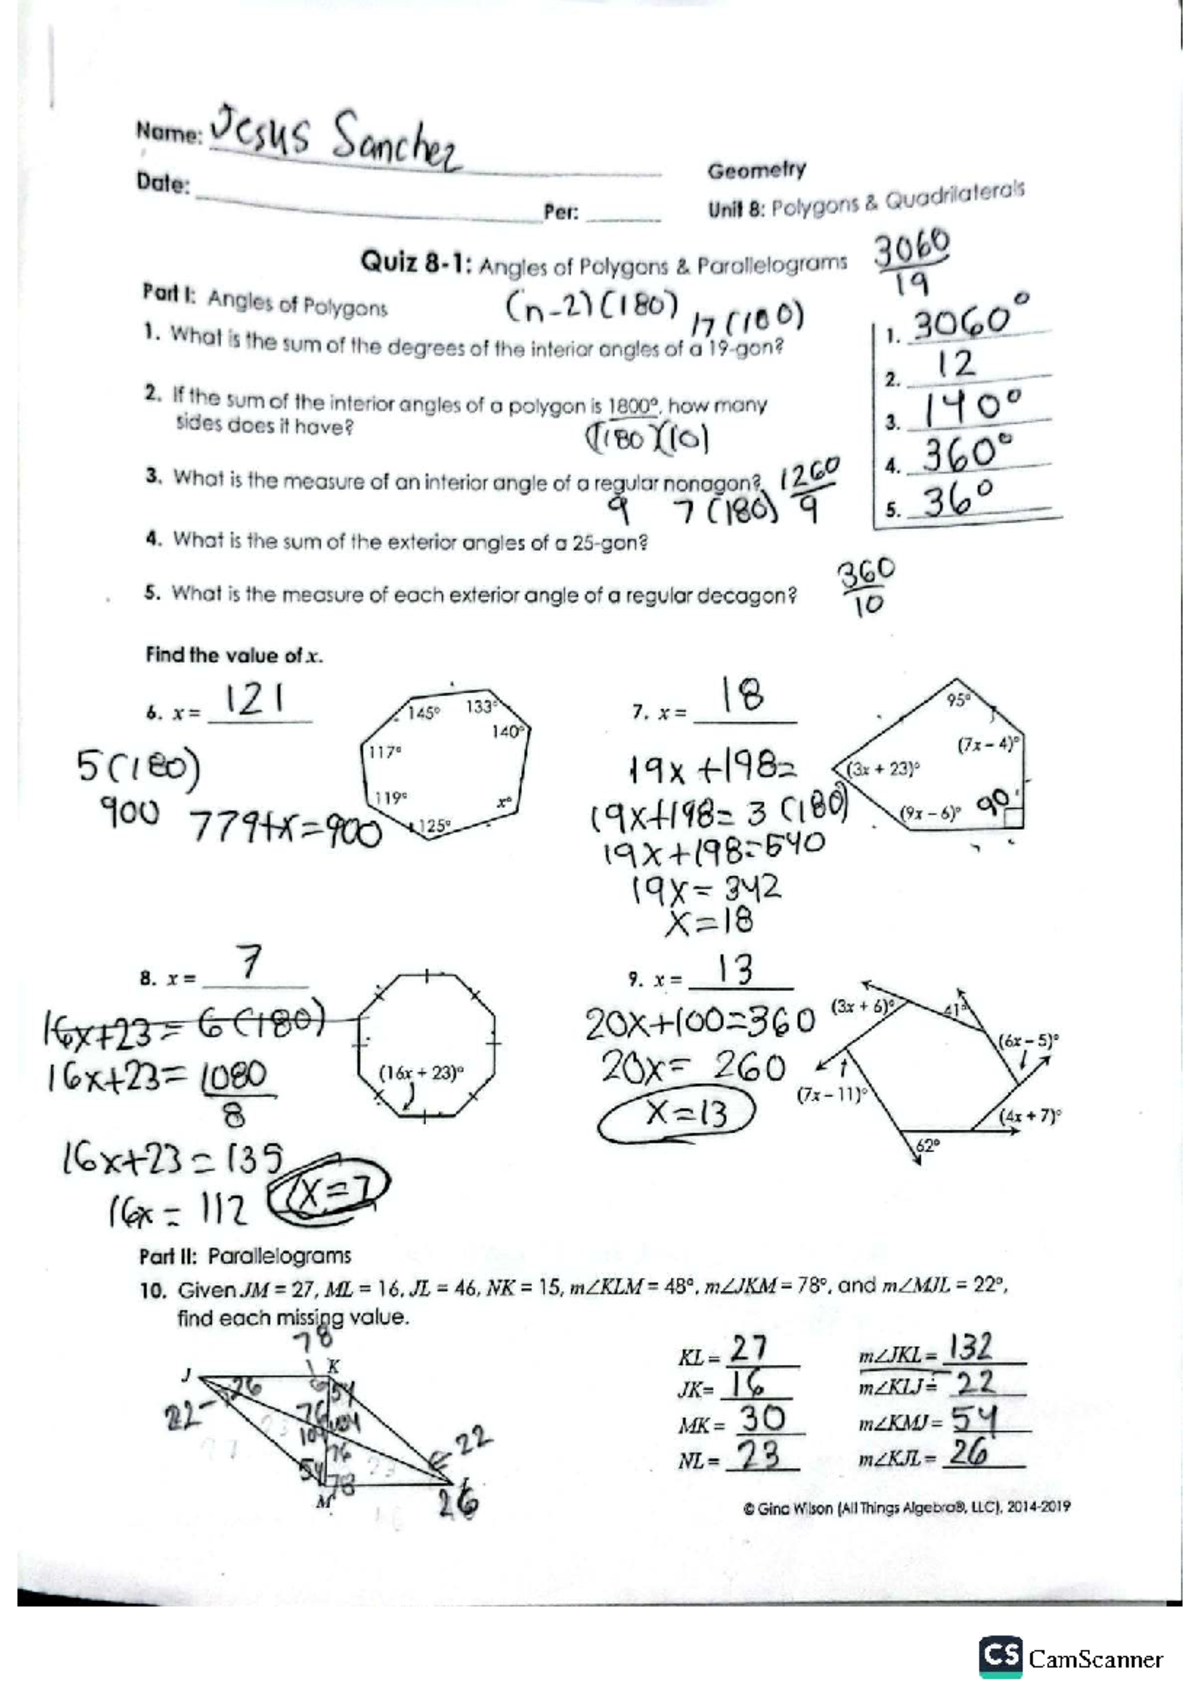 Name: Jesus Sanchez
Geometry
Date:
Per:
Unit 8: Polygons & Quadrilaterals
Quiz 8-1: Angles of Polygons & Parallelograms
3060
19
Part I: Angles of Polygons
(n-2)(180)
17(180)
1. What is the sum of the degrees of the interior angles of a 19-gon?
1. 3060°
2. If the sum of the interior angles of a polygon is 1800°, how many
sides does it have?
(180)(10)
2. 12
3. 140°
3. What is the measure of an interior angle of a regular nonagon?
9 7(180)
1260
9
4. 360°
5. 36°
4. What is the sum of the exterior angles of a 25-gon?
5. What is the measure of each exterior angle of a regular decagon?
360
10
Find the value of x.
6. x = 121
145°
133°
140°
117°
119°
125°
x°
5(180)
900
779+x=900
7. x = 18
95°
(7x – 4)°
(3x + 23)°
(9x – 6)°
90
19x+198=
19x+198=3(180)
19x+198=540
19x=342
x=18
8. x = 7
16x+23=6(180)
16x+23=1080
8
(16x + 23)°
16x+23=135
16x=112
x=7
9. x = 13
20x+100=360
20x=260
x=13
(3x + 6)°
41°
(6x – 5)°
(7x – 11)°
(4x + 7)°
62°
Part II: Parallelograms
10. Given JM = 27, ML = 16, JL = 46, NK = 15, m∠KLM = 48°, m∠JKM = 78°, and m∠MJL = 22°,
find each missing value.
78
J
K
26
54
22
76
104
104
76
22
54
78
M
26
KL = 27
JK= 16
MK = 30
NL = 23
m∠JKL = 132
m∠KLJ = 22
m∠KMJ = 54
m∠KJL = 26
© Gina Wilson (All Things Algebra®, LLC), 2014-2019
CS CamScanner